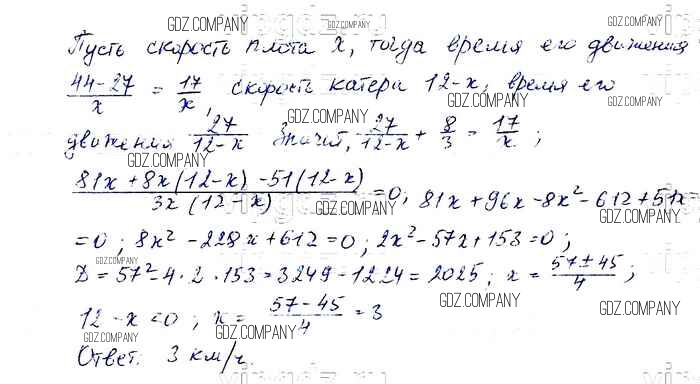 GDZ.COMPANY GDZ.COMPANY
Пусть скорость плота x, тогда время его движения
(44-27)/x = 17/x, скорость катера 12-x, время его
GDZ.COMPANY GDZ.COMPANY
GDZ.COMPANY
движения 27/(12-x) Значит, 27/(12-x) + 8/3 = 17/x ;
GDZ.COMPANY GDZ.COMPANY
(81x+8x(12-x)-51(12-x))/(3x(12-x)) = 0, 81x+96x-8x²-612+51x
GDZ.COMPANY GDZ.COMPANY
= 0 ; 8x² - 228x + 612 = 0 ; 2x² - 57x + 153 = 0 ;
GDZ.COMPANY
Д = 57² - 4 · 2 · 153 = 3249 - 1224 = 2025 ; x = (57 ± 45)/4 ;
GDZ.COMPANY GDZ.COMPANY
12 - x = 0 ; x = (57 - 45)/4 = 3
GDZ.COMPANY GDZ.COMPANY
Ответ: 3 км/ч.
GDZ.COMPANY